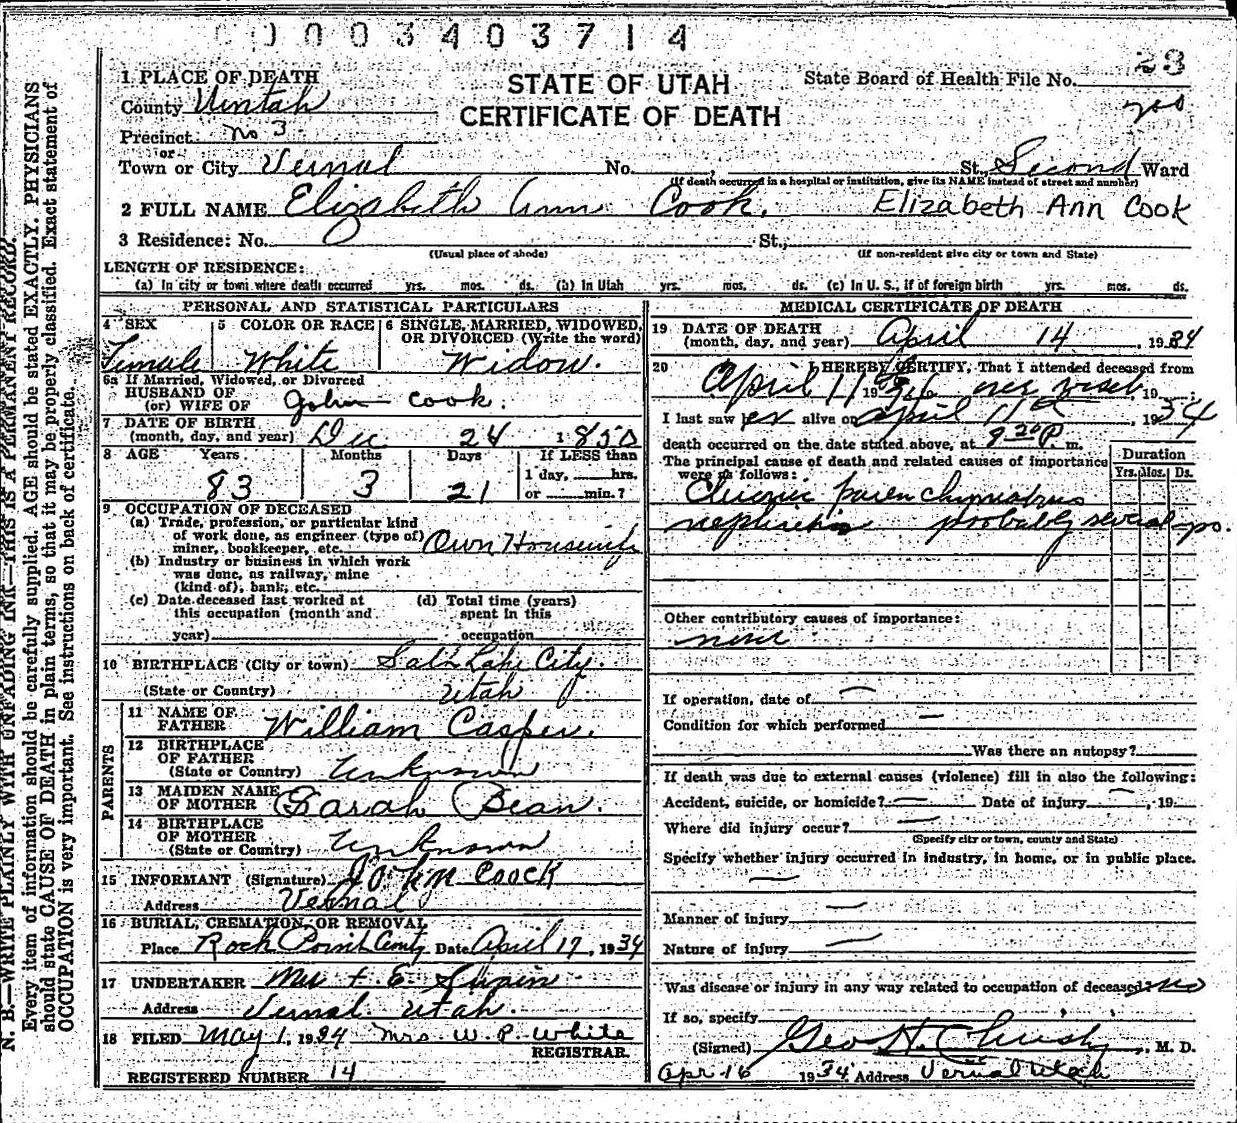 0003403714
23
State Board of Health File No.
200
STATE OF UTAH
CERTIFICATE OF DEATH
1 PLACE OF DEATH
County Uintah
Precinct No 3
or
Town or City Vernal No. St., Second Ward
(If death occurred in a hospital or institution, give its NAME instead of street and number)
2 FULL NAME Elizabeth Ann Cook. Elizabeth Ann Cook
3 Residence: No. St.,
(Usual place of abode) (If non-resident give city or town and State)
LENGTH OF RESIDENCE:
(a) In city or town where death occurred yrs. mos. ds. (b) In Utah yrs. mos. ds. (c) In U. S., if of foreign birth yrs. mos. ds.
PERSONAL AND STATISTICAL PARTICULARS
4 SEX 5 COLOR OR RACE 6 SINGLE, MARRIED, WIDOWED,
OR DIVORCED (Write the word)
Female White Widow.
6a If Married, Widowed, or Divorced
HUSBAND OF
(or) WIFE OF John Cook.
7 DATE OF BIRTH
(month, day, and year) Dec 24 1850
8 AGE Years Months Days If LESS than
1 day, hrs.
83 3 21 or min.?
9 OCCUPATION OF DECEASED
(a) Trade, profession, or particular kind
of work done, as engineer (type of)
miner, bookkeeper, etc. Own Housewife
(b) Industry or business in which work
was done, as railway, mine
(kind of), bank, etc.
(c) Date deceased last worked at
this occupation (month and
year)
(d) Total time (years)
spent in this
occupation
10 BIRTHPLACE (City or town) Salt Lake City.
(State or Country) Utah
PARENTS
11 NAME OF
FATHER William Casper.
12 BIRTHPLACE
OF FATHER
(State or Country) Unknown
13 MAIDEN NAME
OF MOTHER Sarah Bean.
14 BIRTHPLACE
OF MOTHER
(State or Country) Unknown
15 INFORMANT (Signature) John Coock
Address Vernal
16 BURIAL, CREMATION, OR REMOVAL
Place Rock Point Cemty Date April 17, 1934
17 UNDERTAKER
Address Vernal Utah.
18 FILED May 1, 1934 Mrs. W. P. White
REGISTRAR.
REGISTERED NUMBER 14
MEDICAL CERTIFICATE OF DEATH
19 DATE OF DEATH
(month, day, and year) April 14, 1934
20 I HEREBY CERTIFY, That I attended deceased from
April 11 19 one visit 19
I last saw her alive on April 11th, 1934
death occurred on the date stated above, at 9 20 P. m.
The principal cause of death and related causes of importance
were as follows:
Duration
Yrs. Mos. Ds.
Chronic parenchymatous
nephritis probably several mo.
Other contributory causes of importance:
none
If operation, date of —
Condition for which performed —
Was there an autopsy?
If death was due to external causes (violence) fill in also the following:
Accident, suicide, or homicide? — Date of injury —, 19
Where did injury occur? —
(Specify city or town, county and State)
Specify whether injury occurred in industry, in home, or in public place.
—
Manner of injury —
Nature of injury —
Was disease or injury in any way related to occupation of deceased? No
If so, specify
(Signed) Geo H. Christy, M. D.
Apr 16 1934 Address Vernal Utah
N. B.—WRITE PLAINLY WITH UNFADING INK—THIS IS A PERMANENT RECORD.
Every item of information should be carefully supplied. AGE should be stated EXACTLY. PHYSICIANS
should state CAUSE OF DEATH in plain terms, so that it may be properly classified. Exact statement of
OCCUPATION is very important. See instructions on back of certificate.